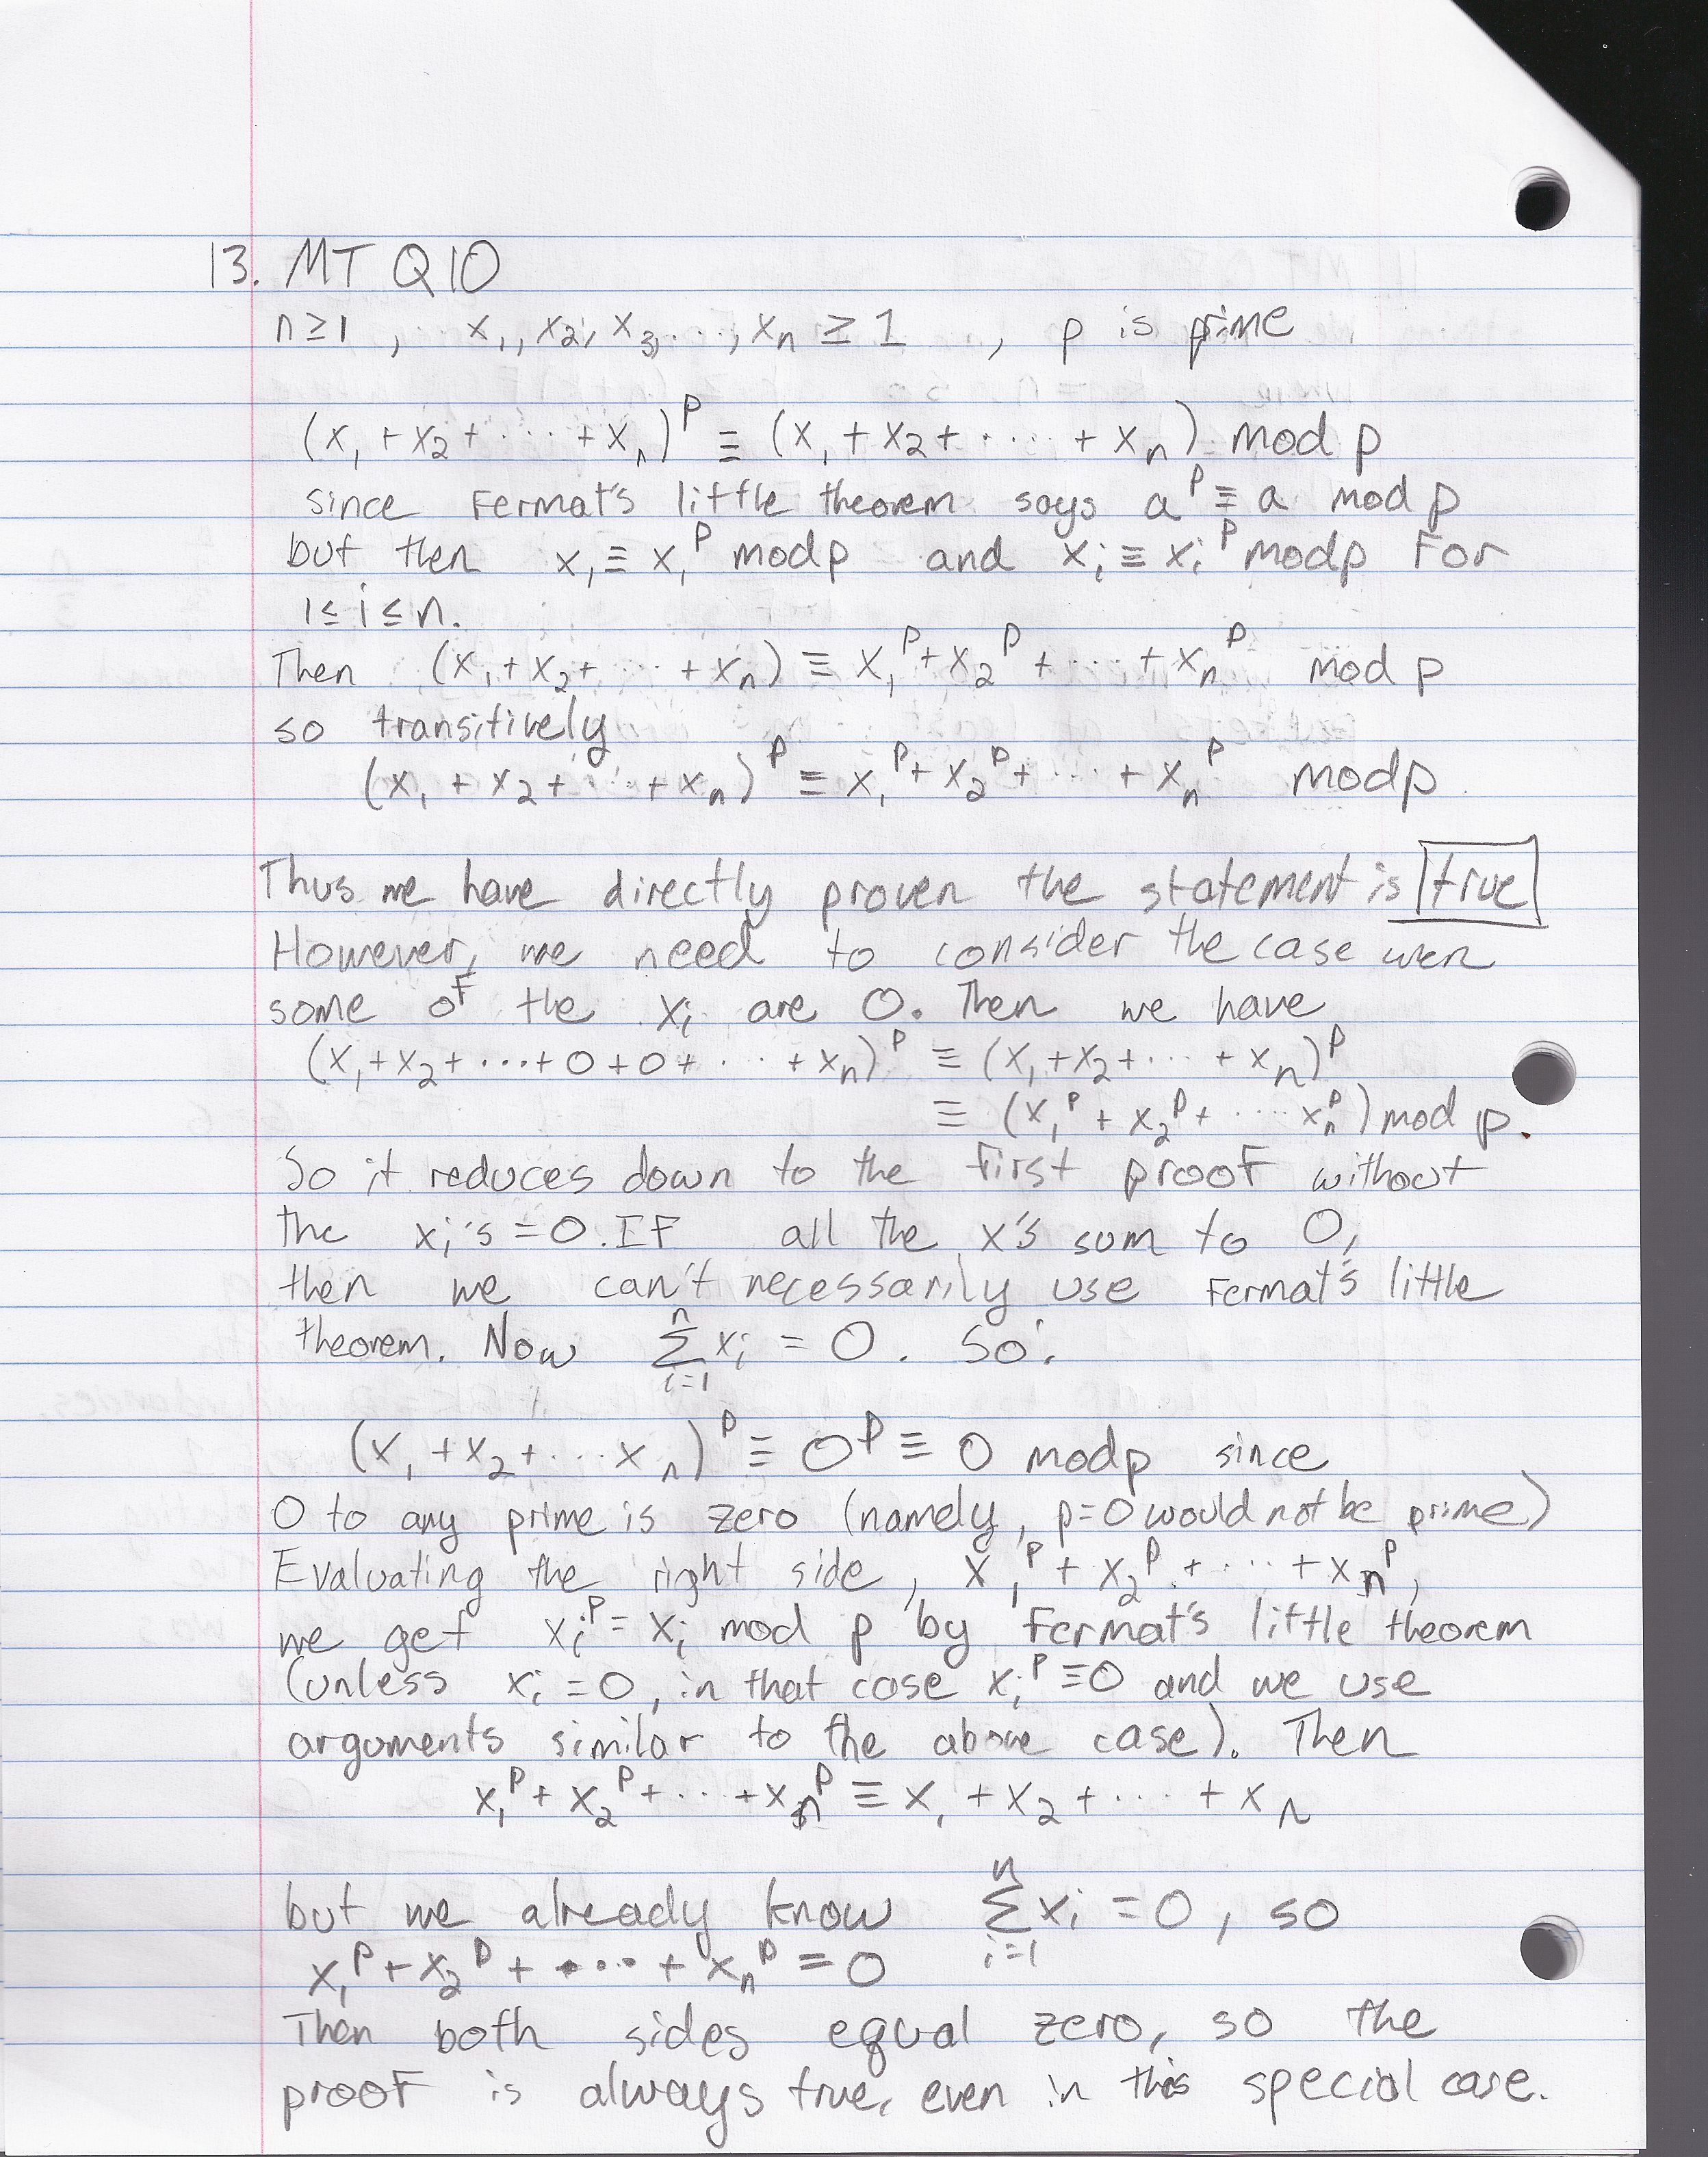 13. MT Q10
n ≥ 1 , x₁, x₂, x₃, ..., xₙ ≥ 1 , p is prime
(x₁ + x₂ + ··· + xₙ)ᵖ ≡ (x₁ + x₂ + ···· + xₙ) mod p
since Fermat's little theorem says aᵖ ≡ a mod p
but then x₁ ≡ x₁ᵖ mod p and xᵢ ≡ xᵢᵖ mod p for
1 ≤ i ≤ n.
Then (x₁ + x₂ + ··· + xₙ) ≡ x₁ᵖ + x₂ᵖ + ··· + xₙᵖ mod p
so transitively
(x₁ + x₂ + ··· + xₙ)ᵖ ≡ x₁ᵖ + x₂ᵖ + ··· + xₙᵖ mod p
Thus we have directly proven the statement is true
However, we need to consider the case wen
some of the xᵢ are 0. Then we have
(x₁ + x₂ + ··· + 0 + 0 + ··· + xₙ)ᵖ ≡ (x₁ + x₂ + ··· + xₙ)ᵖ
≡ (x₁ᵖ + x₂ᵖ + ···· xₙᵖ) mod p.
So it reduces down to the first proof without
the xᵢ's = 0. If all the x's sum to 0,
then we can't necessarily use Fermat's little
theorem. Now ∑ᵢ₌₁ⁿ xᵢ = 0. So:
(x₁ + x₂ + ··· xₙ)ᵖ ≡ 0ᵖ ≡ 0 mod p since
0 to any prime is zero (namely, p=0 would not be prime)
Evaluating the right side, x₁ᵖ + x₂ᵖ + ··· + xₙᵖ,
we get xᵢᵖ = xᵢ mod p by Fermat's little theorem
(unless xᵢ = 0, in that case xᵢᵖ ≡ 0 and we use
arguments similar to the above case). Then
x₁ᵖ + x₂ᵖ + ··· + xₙᵖ ≡ x₁ + x₂ + ··· + xₙ
but we already know ∑ᵢ₌₁ⁿ xᵢ = 0, so
x₁ᵖ + x₂ᵖ + ···· + xₙᵖ = 0
Then both sides equal zero, so the
proof is always true, even in this special case.